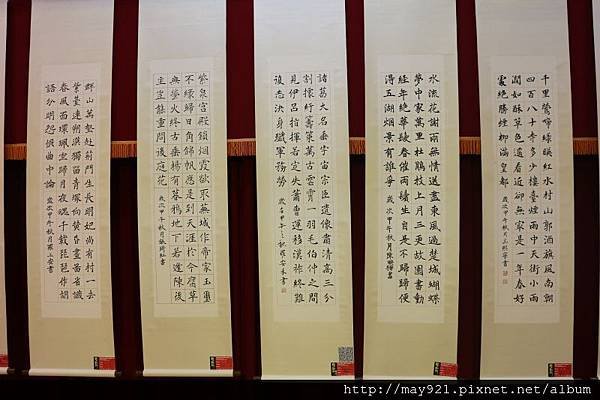 千里鶯啼綠映紅水村山郭酒旗風南朝
四百八十寺多少樓臺煙雨中天街小雨
潤如酥草色遙看近卻無最是一年春好
處絕勝煙柳滿皇都 歲次甲午秋月
水流花謝兩無情送盡東風過楚城蝴蝶
夢中家萬里杜鵑枝上月三更故園書動
經年絕華髮春催兩鬢生自是不歸歸便
得五湖煙景有誰爭 歲次甲午秋月
諸葛大名垂宇宙宗臣遺像肅清高三分
割據紆籌策萬古雲霄一羽毛伯仲之間
見伊呂指揮若定失蕭曹運移漢祚終難
復志決身殲軍務勞
紫泉宮殿鎖煙霞欲取蕪城作帝家玉璽
不緣歸日角錦帆應是到天涯於今腐草
無螢火終古垂楊有暮鴉地下若逢陳後
主豈宜重問後庭花 歲次甲午秋月
群山萬壑赴荊門生長明妃尚有村一去
紫臺連朔漠獨留青塚向黃昏畫圖省識
春風面環珮空歸月夜魂千載琵琶作胡
語分明怨恨曲中論 歲次甲午秋月
http://may921.pixnet.net/album